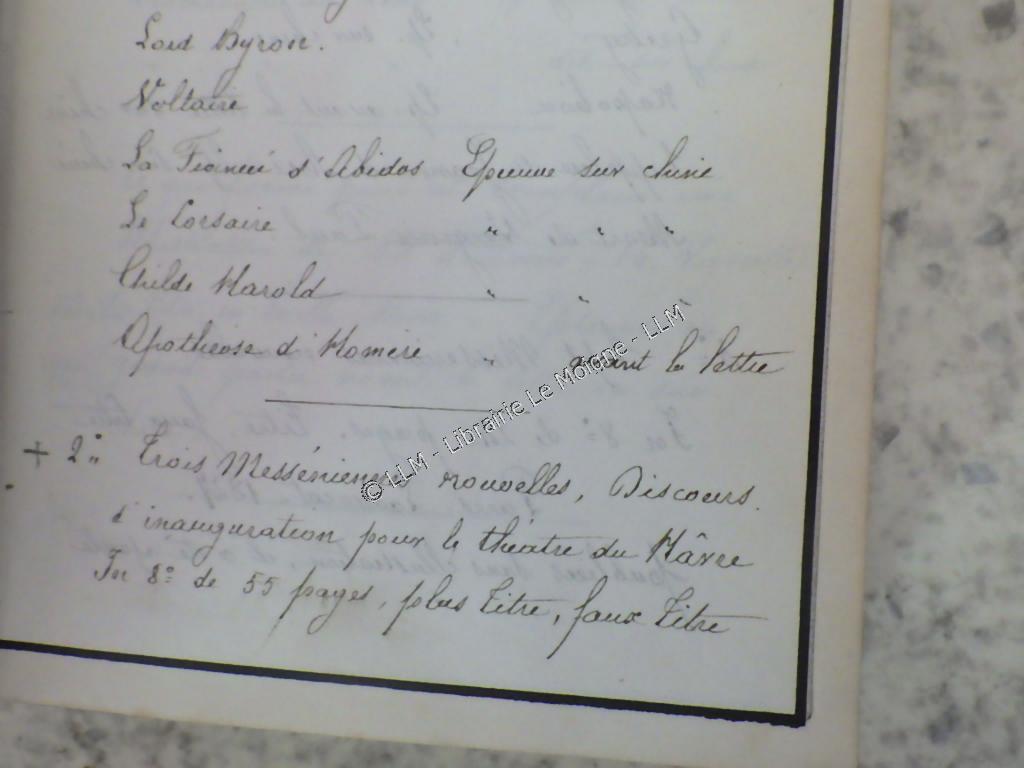 Lord Byron.
Voltaire
La Fiancée d'Abidos Epreuve sur chine
Le Corsaire " " "
Childe Harold " "
Apotheose d'Homère " avant la lettre
+ 2° Trois Messéniennes nouvelles, Discours
d'inauguration pour le théatre du Hâvre
In 8° de 55 pages, plus titre, faux titre
© LLM - Librairie Le Moigne - LLM